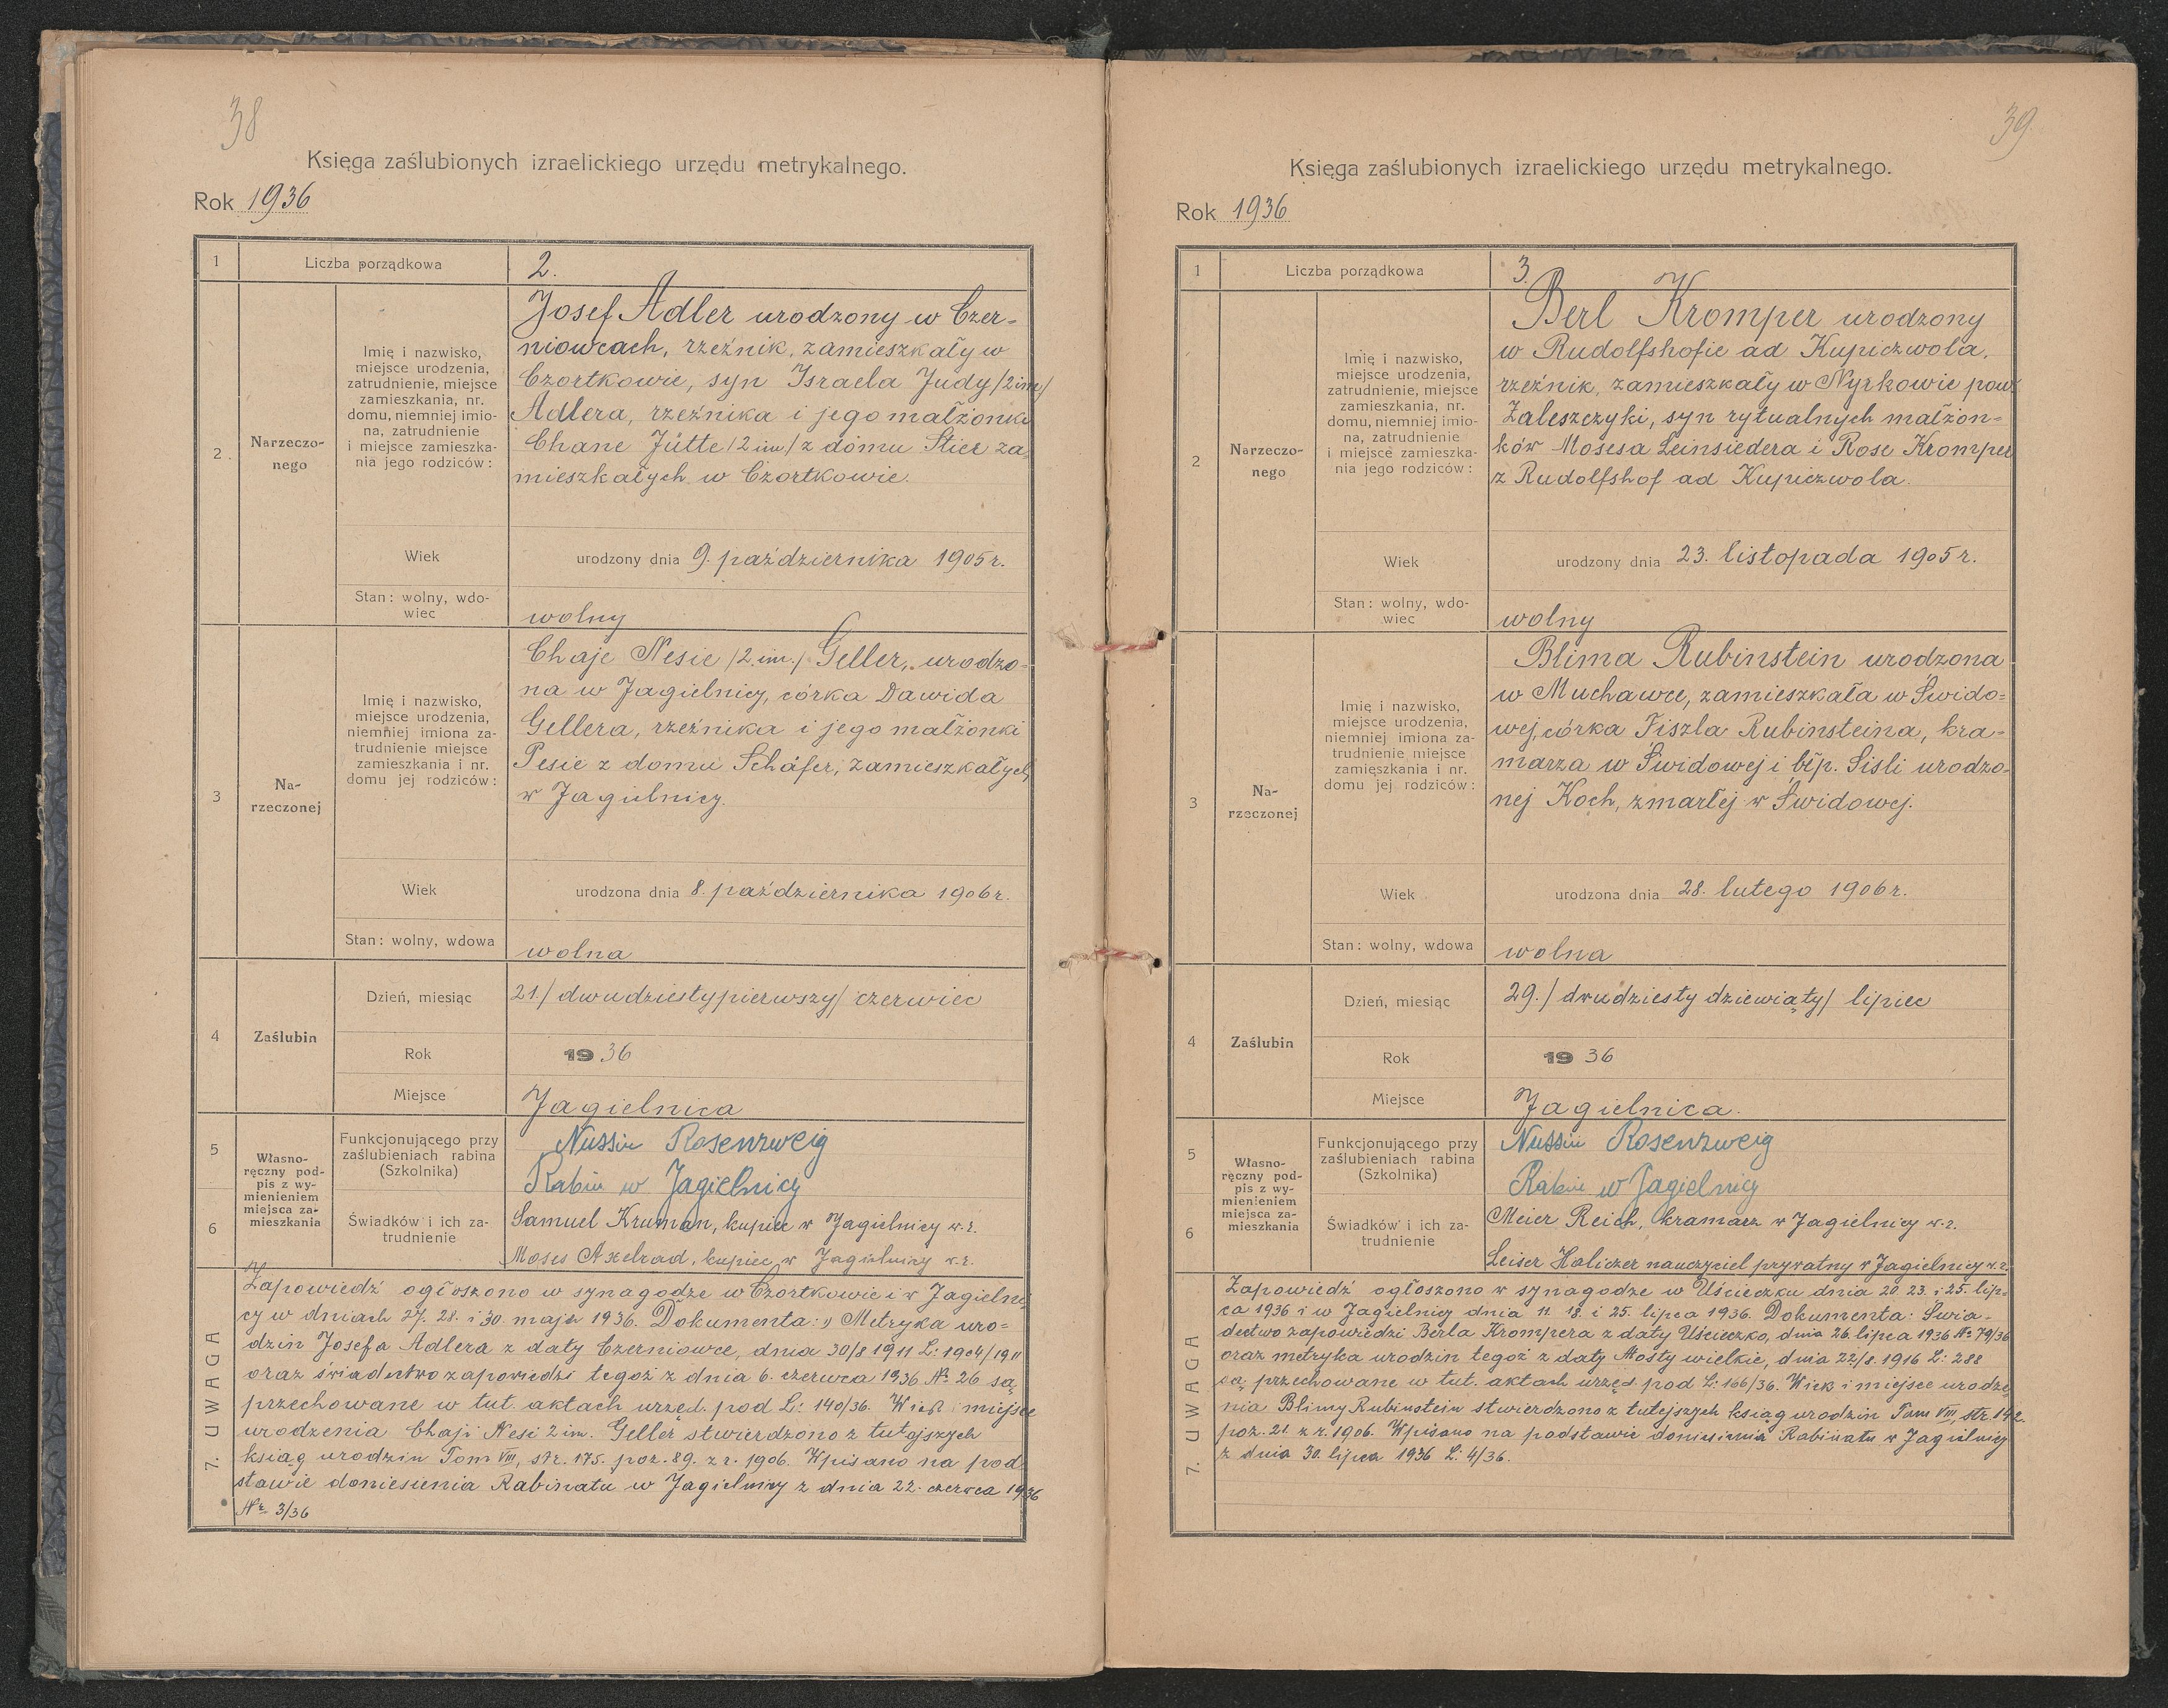 38
Księga zaślubionych izraelickiego urzędu metrykalnego.
Rok 1936
1
Liczba porządkowa
2.
2.
Narzeczo-
nego
Imię i nazwisko,
miejsce urodzenia,
zatrudnienie, miejsce
zamieszkania, nr.
domu, niemniej imio-
na, zatrudnienie
i miejsce zamieszka-
nia jego rodziców:
Josef Adler urodzony w Czer-
niowcach, rzeźnik, zamieszkały w
Czortkowie, syn Israela Judy /2 im/
Adlera, rzeźnika i jego małżonki
Chane Jütte /2 im/ z domu Stier za-
mieszkałych w Czortkowie.
Wiek
urodzony dnia 9. października 1905 r.
Stan: wolny, wdo-
wiec
wolny
3
Na-
rzeczonej
Imię i nazwisko,
miejsce urodzenia,
niemniej imiona za-
trudnienie miejsce
zamieszkania i nr.
domu jej rodziców:
Chaje Nesie /2 im./ Geller, urodzo-
na w Jagielnicy, córka Dawida
Gellera, rzeźnika i jego małżonki
Pesie z domu Schäfer, zamieszkałych
w Jagielnicy.
Wiek
urodzona dnia 8. października 1906 r.
Stan: wolny, wdowa
wolna
4
Zaślubin
Dzień, miesiąc
21./ dwudziestypierwszy/ czerwiec
Rok
1936
Miejsce
Jagielnica
5
6
Własno-
ręczny pod-
pis z wy-
mienieniem
miejsca za-
mieszkania
Funkcjonującego przy
zaślubieniach rabina
(Szkolnika)
Nussin Rosenzweig
Rabin w Jagielnicy
Świadków i ich za-
trudnienie
Samuel Kruman, kupiec w Jagielnicy w.r.
Moses Axelrad, kupiec w Jagielnicy w.r.
7. UWAGA
Zapowiedź ogłoszono w synagodze w Czortkowie i w Jagielni-
cy w dniach 27. 28. i 30. maja 1936. Dokumenta: 1) Metryka uro-
dzin Josefa Adlera z daty Czerniowce, dnia 30/8 1911 L: 1904/1911
oraz świadectwo zapowiedzi tegoż z dnia 6. czerwca 1936 № 26 są
przechowane w tut. aktach urzęd. pod L: 140/36. Wiek i miejsce
urodzenia Chaji Nesi 2 im. Geller stwierdzono z tutejszych
ksiąg urodzin Tom VIII, str. 175. poz. 89. z r. 1906. Wpisano na pod-
stawie doniesienia Rabinatu w Jagielnicy z dnia 22. czerwca 1936
Nr. 3/36
39
Księga zaślubionych izraelickiego urzędu metrykalnego.
Rok 1936
1
Liczba porządkowa
3.
2
Narzeczo-
nego
Imię i nazwisko,
miejsce urodzenia,
zatrudnienie, miejsce
zamieszkania, nr.
domu, niemniej imio-
na, zatrudnienie
i miejsce zamieszka-
nia jego rodziców:
Berl Kromper urodzony
w Rudolfshofie ad Kupiczwola,
rzeźnik, zamieszkały w Nyrkowie pow.
Zaleszczyki, syn rytualnych małżon-
ków Mosesa Leinsiedera i Rose Kromper
z Rudolfshof ad Kupiczwola.
Wiek
urodzony dnia 23. listopada 1905 r.
Stan: wolny, wdo-
wiec
wolny
3
Na-
rzeczonej
Imię i nazwisko,
miejsce urodzenia,
niemniej imiona za-
trudnienie miejsce
zamięszkania i nr.
domu jej rodziców:
Blima Rubinstein urodzona
w Muchawce, zamieszkała w Śwido-
wej, córka Fiszla Rubinsteina, kra-
marza w Świdowej i błp. Sisli urodzo-
nej Koch, zmarłej w Świdowej.
Wiek
urodzona dnia 28. lutego 1906 r.
Stan: wolny, wdowa
wolna
4
Zaślubin
Dzień, miesiąc
29./ dwudziesty dziewiąty/ lipiec
Rok
1936
Miejsce
Jagielnica.
5
6
Własno-
ręczny pod-
pis z wy-
mienieniem
miejsca za-
mieszkania
Funkcjonującego przy
zaślubieniach rabina
(Szkolnika)
Nussin Rosenzweig
Rabin w Jagielnicy
Świadków i ich za-
trudnienie
Meier Reich, kramarz w Jagielnicy w.r.
Leiser Haliczer nauczyciel prywatny w Jagielnicy w.r.
7. UWAGA
Zapowiedź ogłoszono w synagodze w Uścieczku dnia 20. 23. i 25. lip-
ca 1936 i w Jagielnicy dnia 11. 18. i 25. lipca 1936. Dokumenta: Świa-
dectwo zapowiedzi Berla Krompera z daty Uścieczko, dnia 26. lipca 1936 № 79/36
oraz metryka urodzin tegoż z daty Mosty wielkie, dnia 22/8. 1916 L: 288
są przechowane w tut. aktach urzęd. pod L: 166/36. Wiek i miejsce urodze-
nia Blimy Rubinstein stwierdzono z tutejszych ksiąg urodzin Tom VIII, str. 142.
poz. 21. z r. 1906. Wpisano na podstawie doniesienia Rabinatu w Jagielnicy
z dnia 30. lipca 1936 L. 4/36.